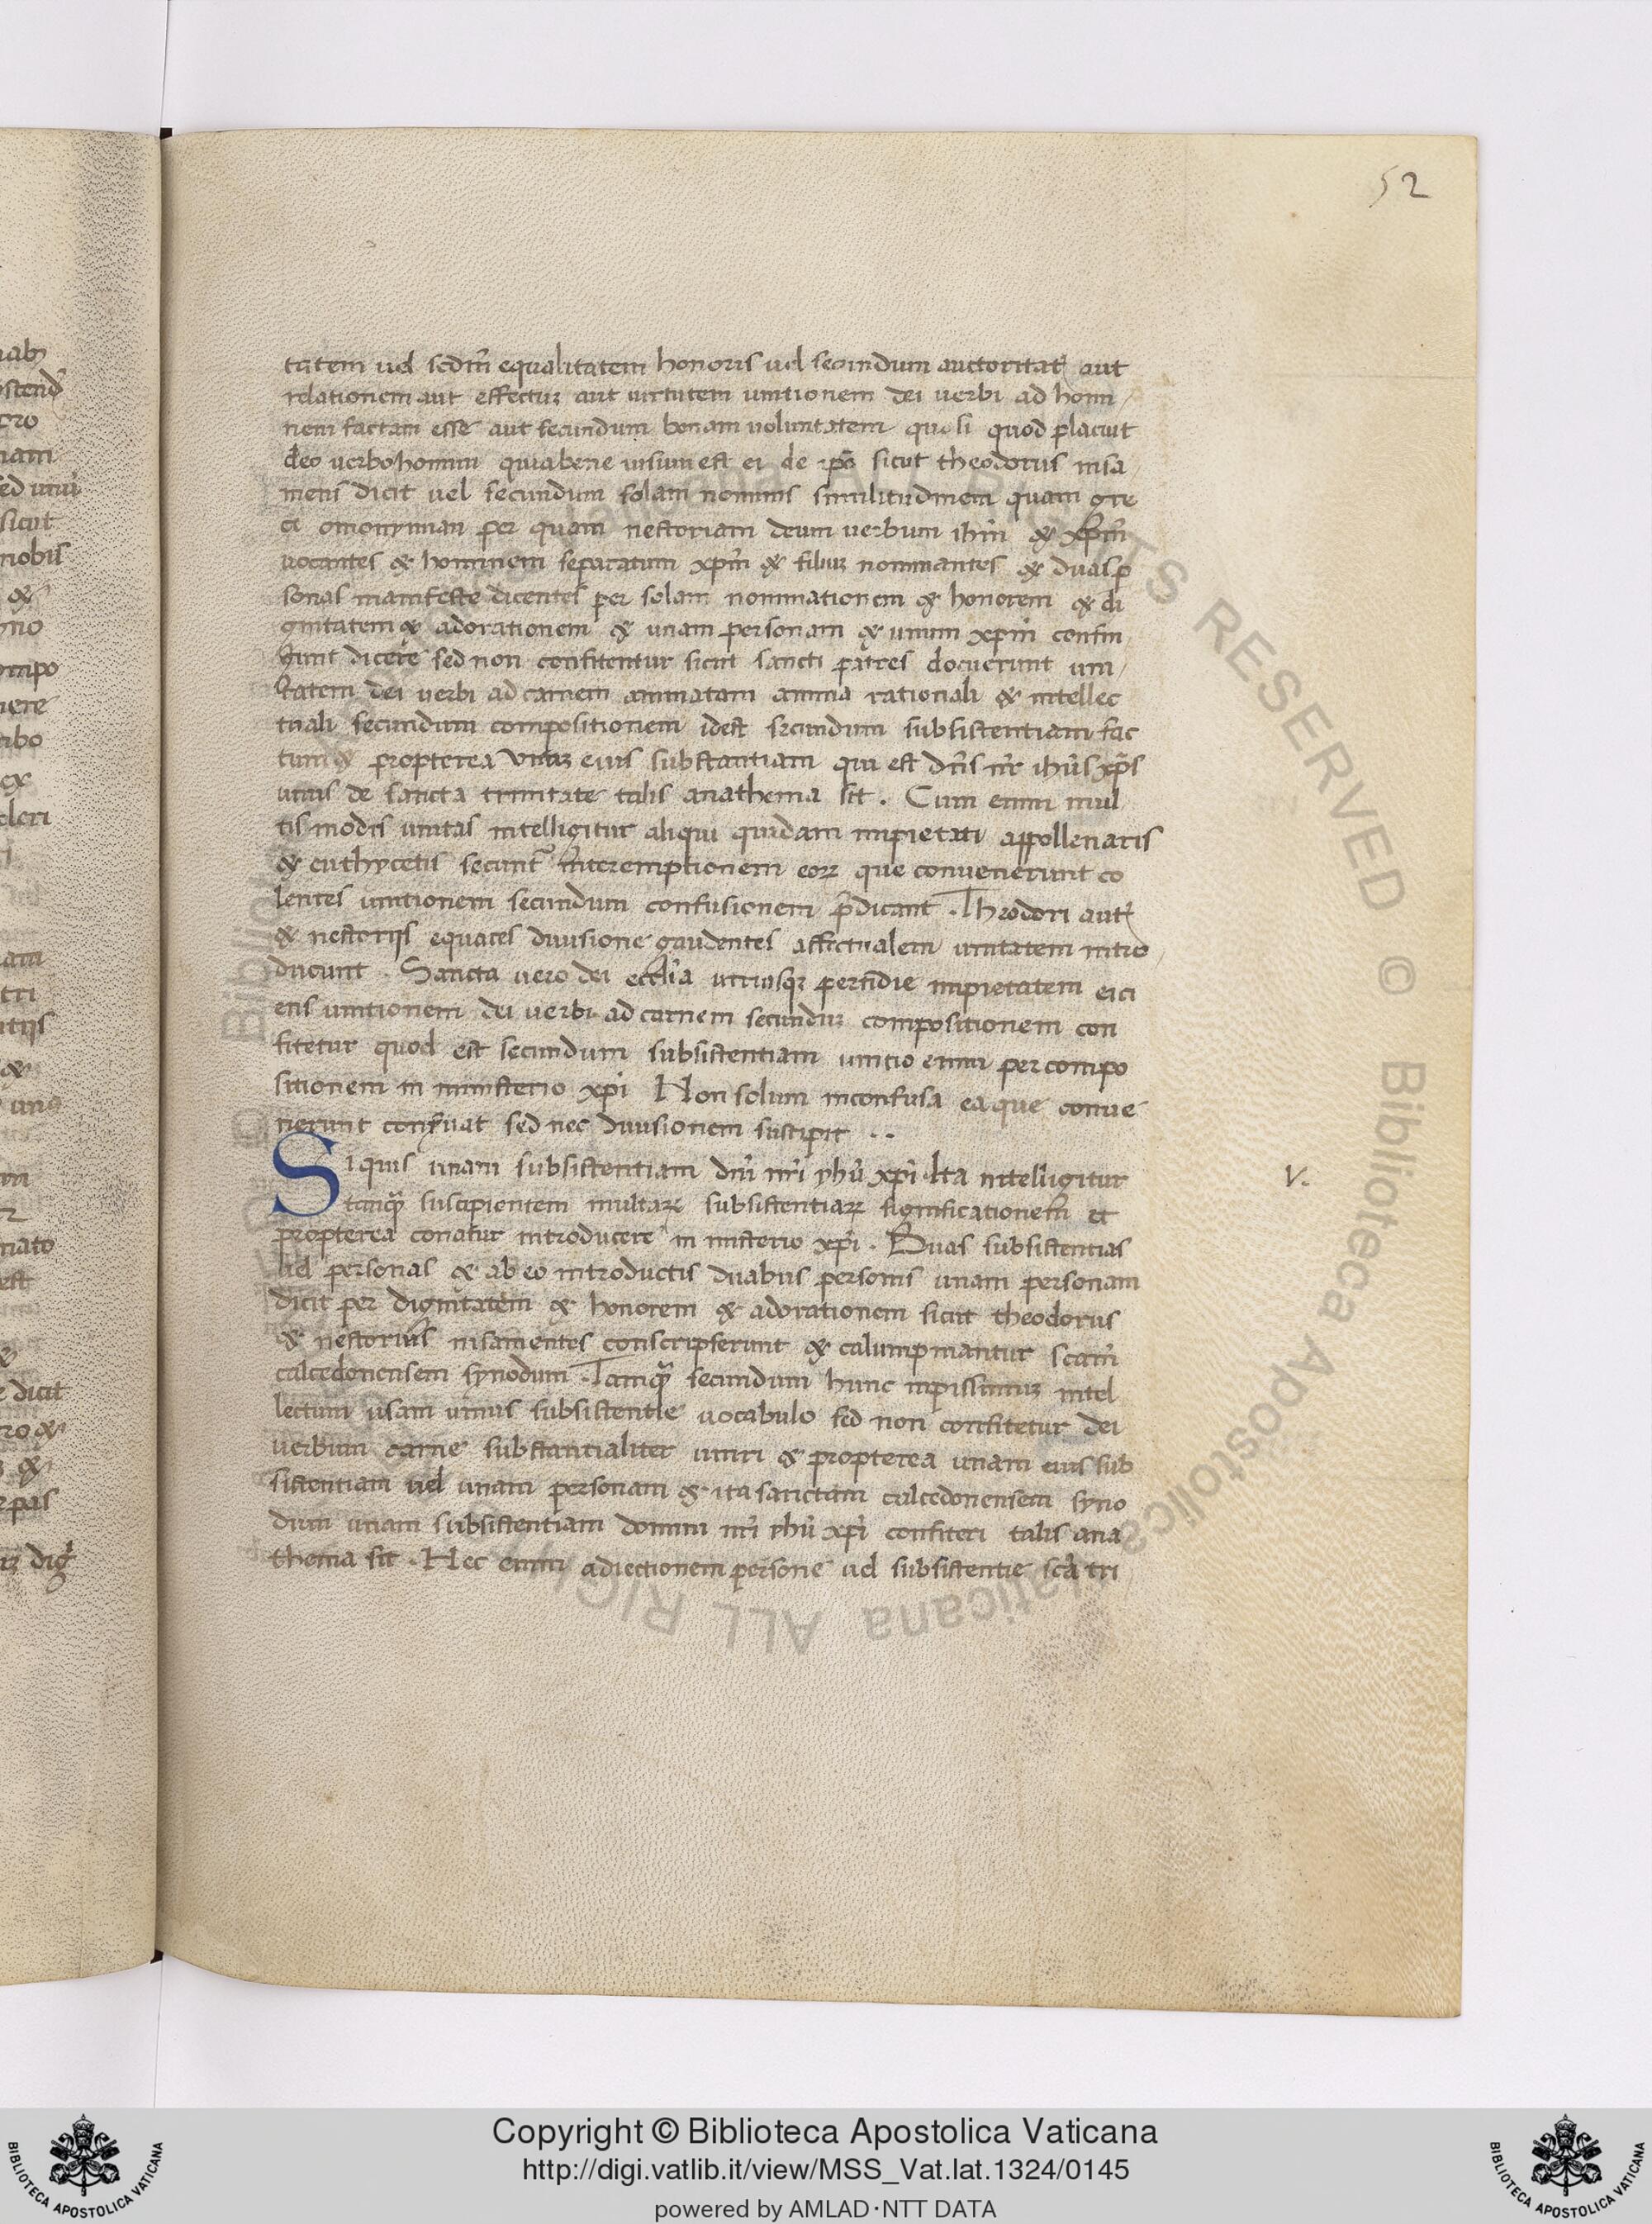 52
tatem uel scdm̄ equalitatem honoris uel secundum auctoritatē aut
relationem aut effectuʒ aut uirtutem unitionem dei uerbi ad homi
nem factam esse aut secundum bonam uoluntatem quasi quod placuit
deo uerbo homini quia bene uisum est ei de ip̄o sicut theodorus insa
niens dicit uel secundum solam nominis similitudinem quam gre
ci omonymian per quam nestoriam deum uerbum ihm̄ & xpm̄
uocantes & hominem separatum xpm̄ & filiuʒ nominantes & duas ꝑ
sonas manifeste dicentes per solam nominationem & honorem & di
gnitatem & adorationem & unam personam & unum xpm̄ confin
gunt dicere sed non confitentur sicut sancti patres docuerunt uni
tatem dei uerbi ad carnem animatam anima rationali & intellec
tuali secundum compositionem idest secundum subsistentiam fac
tum & propterea unaʒ eius substantiam qui est dn̄s nr̄ ihūs xp̄s
unus de sancta trinitate talis anathema sit . Cum enim mul
tis modis unitas intelligitur aliqui quidam impietati appollenaris
& euthycetis secunt᷑ interemptionem eorꝝ que conuenerunt co
lentes unitionem secundum confusionem p̄dicant . Theodori autē
& nestorijs equaces diuisione gaudentes affectualem unitatem intro
ducunt . Sancta uero dei eccl̄ia utriusqʒ perfidie impietatem eici
ens unitionem dei uerbi ad carnem secunduʒ compositionem con
fitetur quod est secundum subsistentiam unitio enim per compo
sitionem in ministerio xpi Non solum inconfusa ea que conue
nerunt conseruat sed nec diuisionem suscipit . .
Si quis unam subsistentiam dnī nrī yhū xpī Ita intelligitur V.
tanqꝫ suscipientem multarꝝ subsistentiarꝝ significationem et
propterea conatur introducere in misterio xpī . Duas subsistentias
uel personas & ab eo introductis duabus personis unam personam
dicit per dignitatem & honorem & adorationem sicut theodorus
& nestorius insanientes conscripserunt & calumpniantur scam̄
calcedonensem synodum . Tamqꝫ secundum hunc inpissimuʒ intel
lectum usam unius subsistentie uocabulo sed non confitetur dei
uerbum carne substantialiter uniri & propterea unam eius sub
sistentiam uel unam personam & ita sanctam calcedonensem syno
dum unam subsistentiam domini nrī yhū xpī confiteri talis ana
thema sit . Nec enim adiectionem persone uel subsistentie scā tri
Copyright © Biblioteca Apostolica Vaticana
http://digi.vatlib.it/view/MSS_Vat.lat.1324/0145
powered by AMLAD·NTT DATA